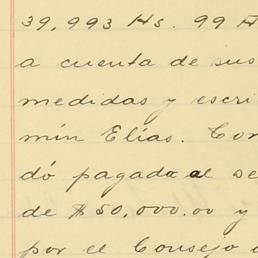 39,993 Hs. 99 A
a cuenta de sus
medidas y escri
mín Elías. Con
dó pagada al se
de $50,000.00 y
por el Consejo d